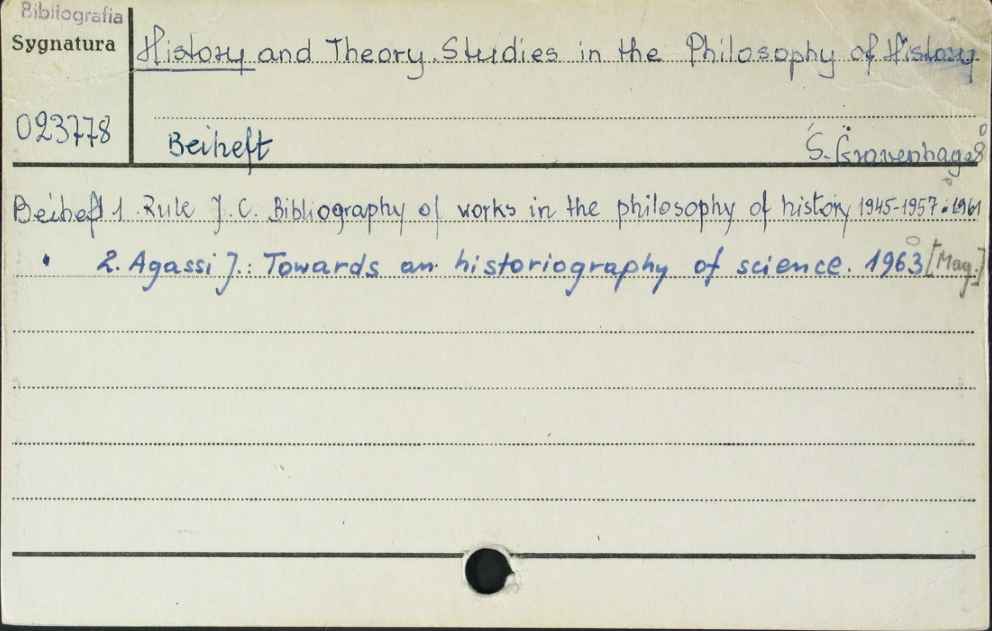 Bibliografia
Sygnatura
History and Theory. Studies in the Philosophy of History
023778
Beiheft
S. Gravenhage 8°
Beiheft 1. Rule J. C. Bibliography of works in the philosophy of history 1945-1957. 1961
" 2. Agassi J.: Towards an historiography of science. 1963 [Mag.]